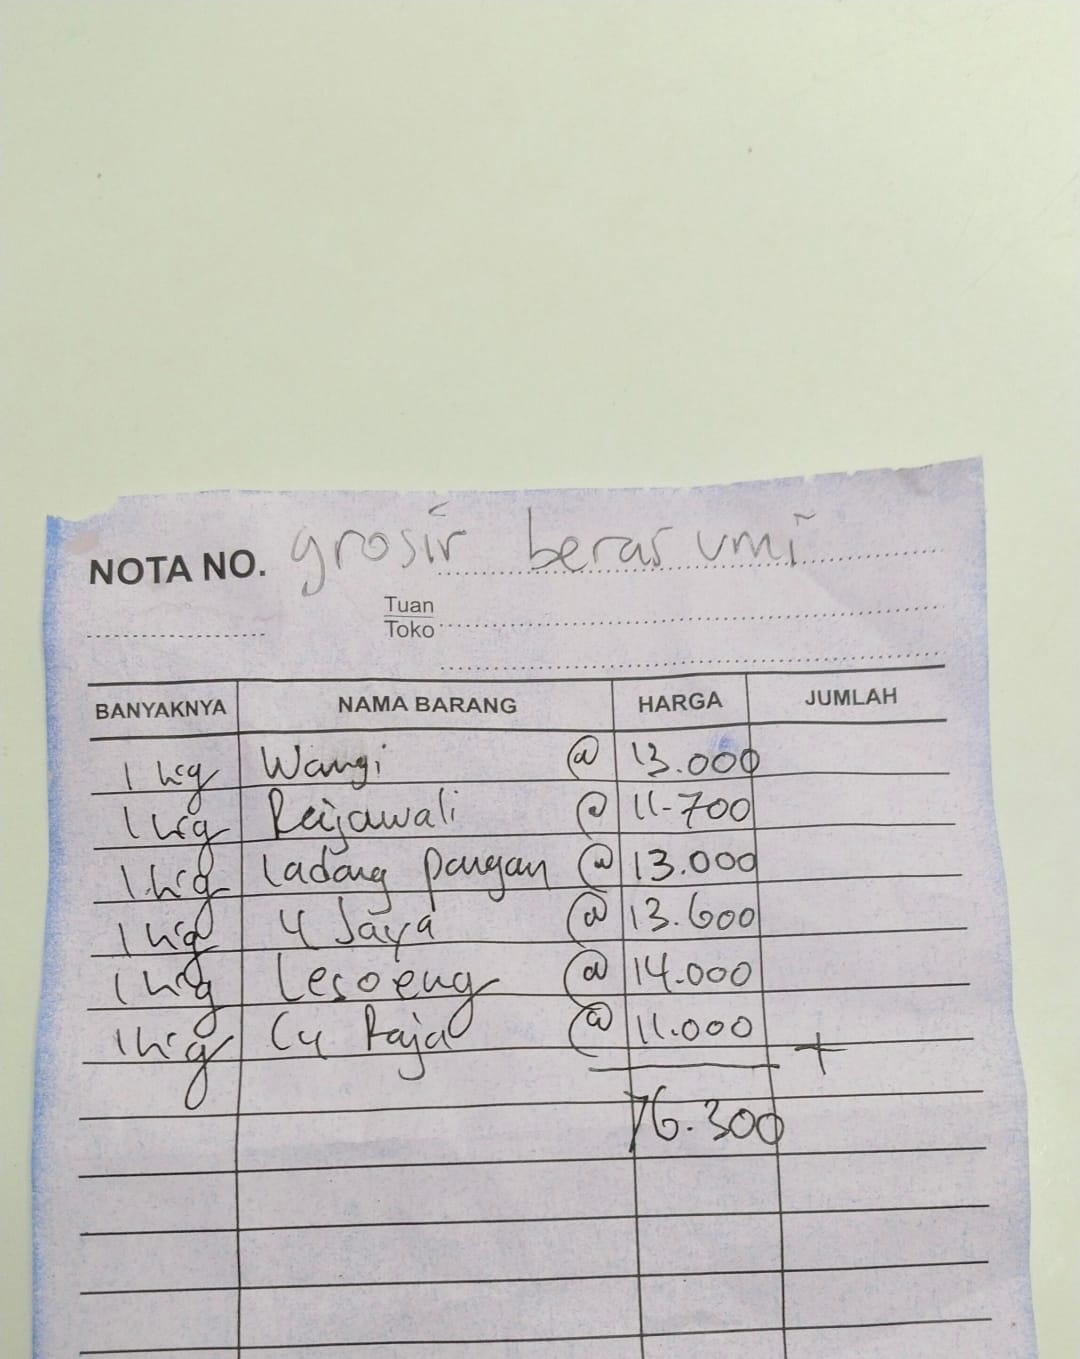 NOTA NO. grosir beras umi
Tuan
Toko
BANYAKNYA NAMA BARANG HARGA JUMLAH
1 kg Wangi @ 13.000
1 kg Rajawali @ 11.700
1 kg Ladang pangan @ 13.000
1 kg 4 Jaya @ 13.600
1 kg Lesoeng @ 14.000
1 kg C4 Raja @ 11.000
+
76.300